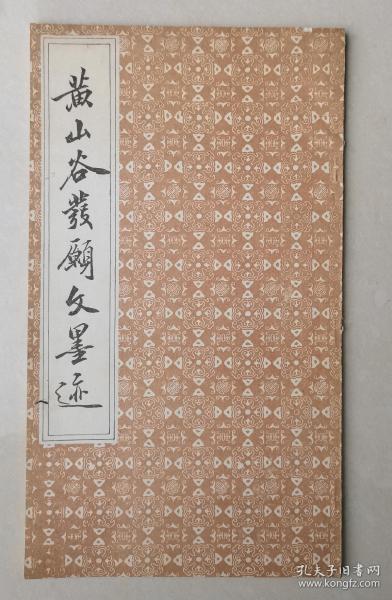 黄山谷發願文墨迹
孔夫子旧书网
www.kongfz.com